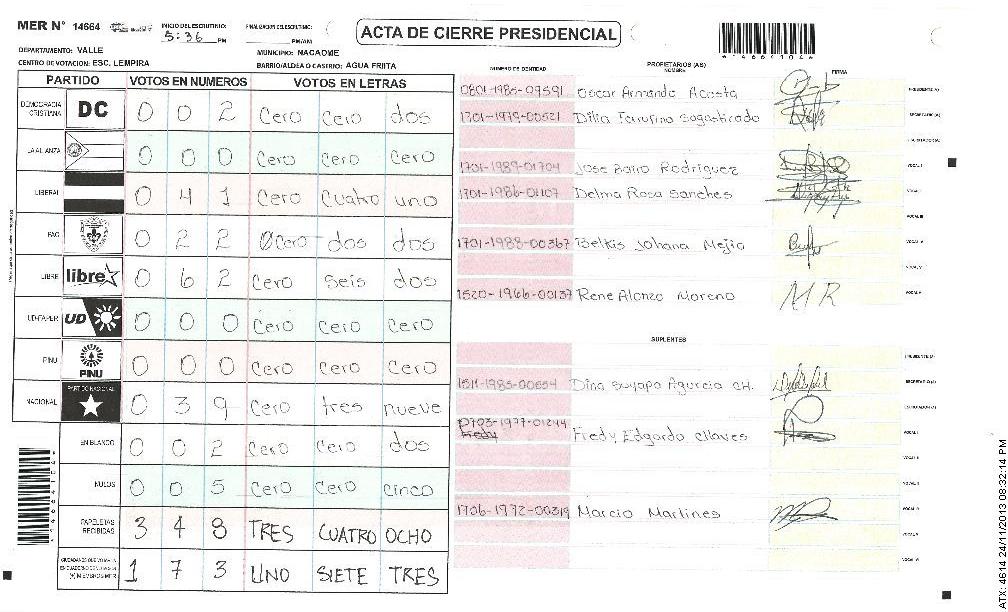 MER N° 14664 INICIO DEL ESCRUTINIO: 5:36 PM FINALIZACION DEL ESCRUTINIO: PM/AM
ACTA DE CIERRE PRESIDENCIAL
DEPARTAMENTO: VALLE MUNICIPIO: NACAOME
CENTRO DE VOTACION: ESC. LEMPIRA BARRIO/ALDEA O CASERIO: AGUA FRIITA
PARTIDO VOTOS EN NUMEROS VOTOS EN LETRAS
DEMOCRACIA CRISTIANA DC 0 0 2 Cero Cero dos
LA ALIANZA 0 0 0 Cero Cero Cero
LIBERAL 0 4 1 Cero Cuatro uno
PAC 0 2 2 Cero dos dos
LIBRE libre 0 6 2 Cero Seis dos
UD-FAPER UD 0 0 0 Cero Cero Cero
PINU PINU 0 0 0 Cero Cero Cero
NACIONAL PARTIDO NACIONAL 0 3 9 Cero tres nueve
EN BLANCO 0 0 2 Cero Cero dos
NULOS 0 0 5 Cero Cero Cinco
PAPELETAS RECIBIDAS 3 4 8 TRES CUATRO OCHO
1 7 3 UNO SIETE TRES
NUMERO DE IDENTIDAD PROPIETARIOS (AS) NOMBRE FIRMA
0801-1985-09591 Oscar Armando Acosta PRESIDENTE (A)
1701-1979-00521 Dilia sagastizado SECRETARIO (A)
ESCRUTADOR (A)
1701-1989-01704 Jose Rodriguez VOCAL I
1701-1986-01107 Delma Rosa Sanches VOCAL II
VOCAL III
1701-1988-00367 Belkis Johana Mejia VOCAL IV
VOCAL V
1520-1966-00137 Rene Alonzo Moreno MR VOCAL VI
SUPLENTES
PRESIDENTE (A)
1511-1985-00654 Dina Suyapa Agurcia CH. SECRETARIO (A)
ESCRUTADOR (A)
0703-1977-01244 Fredy Fredy Edgardo Chaves VOCAL I
VOCAL II
VOCAL III
1706-1972-00319 Marcio Martines VOCAL IV
VOCAL V
VOCAL VI
ATX: 4614 24/11/2013 08:32:14 PM